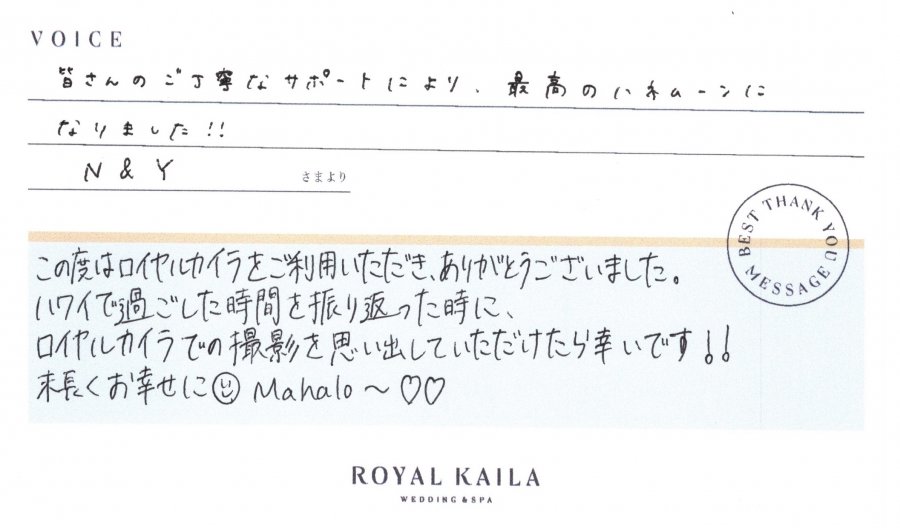 VOICE
皆さんのご丁寧なサポートにより、最高のハネムーンに
なりました!!
N & Y さまより
BEST THANK YOU MESSAGE
この度はロイヤルカイラをご利用いただき、ありがとうございました。
ハワイで過ごした時間を振り返った時に、
ロイヤルカイラでの撮影を思い出していただけたら幸いです!!
末長くお幸せに☺ Mahalo～♡♡
ROYAL KAILA
WEDDING & SPA